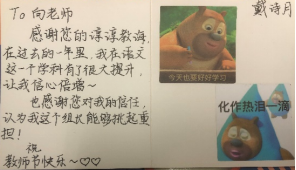 To 向老师
感谢您的谆谆教诲,
在过去的一年里,我在语文
这一个学科有了很大提升,
让我信心倍增~
也感谢您对我的信任,
认为我这个组长能够挑起重
担!
祝
教师节快乐~♡♡
戴诗月
今天也要好好学习
化作热泪一滴